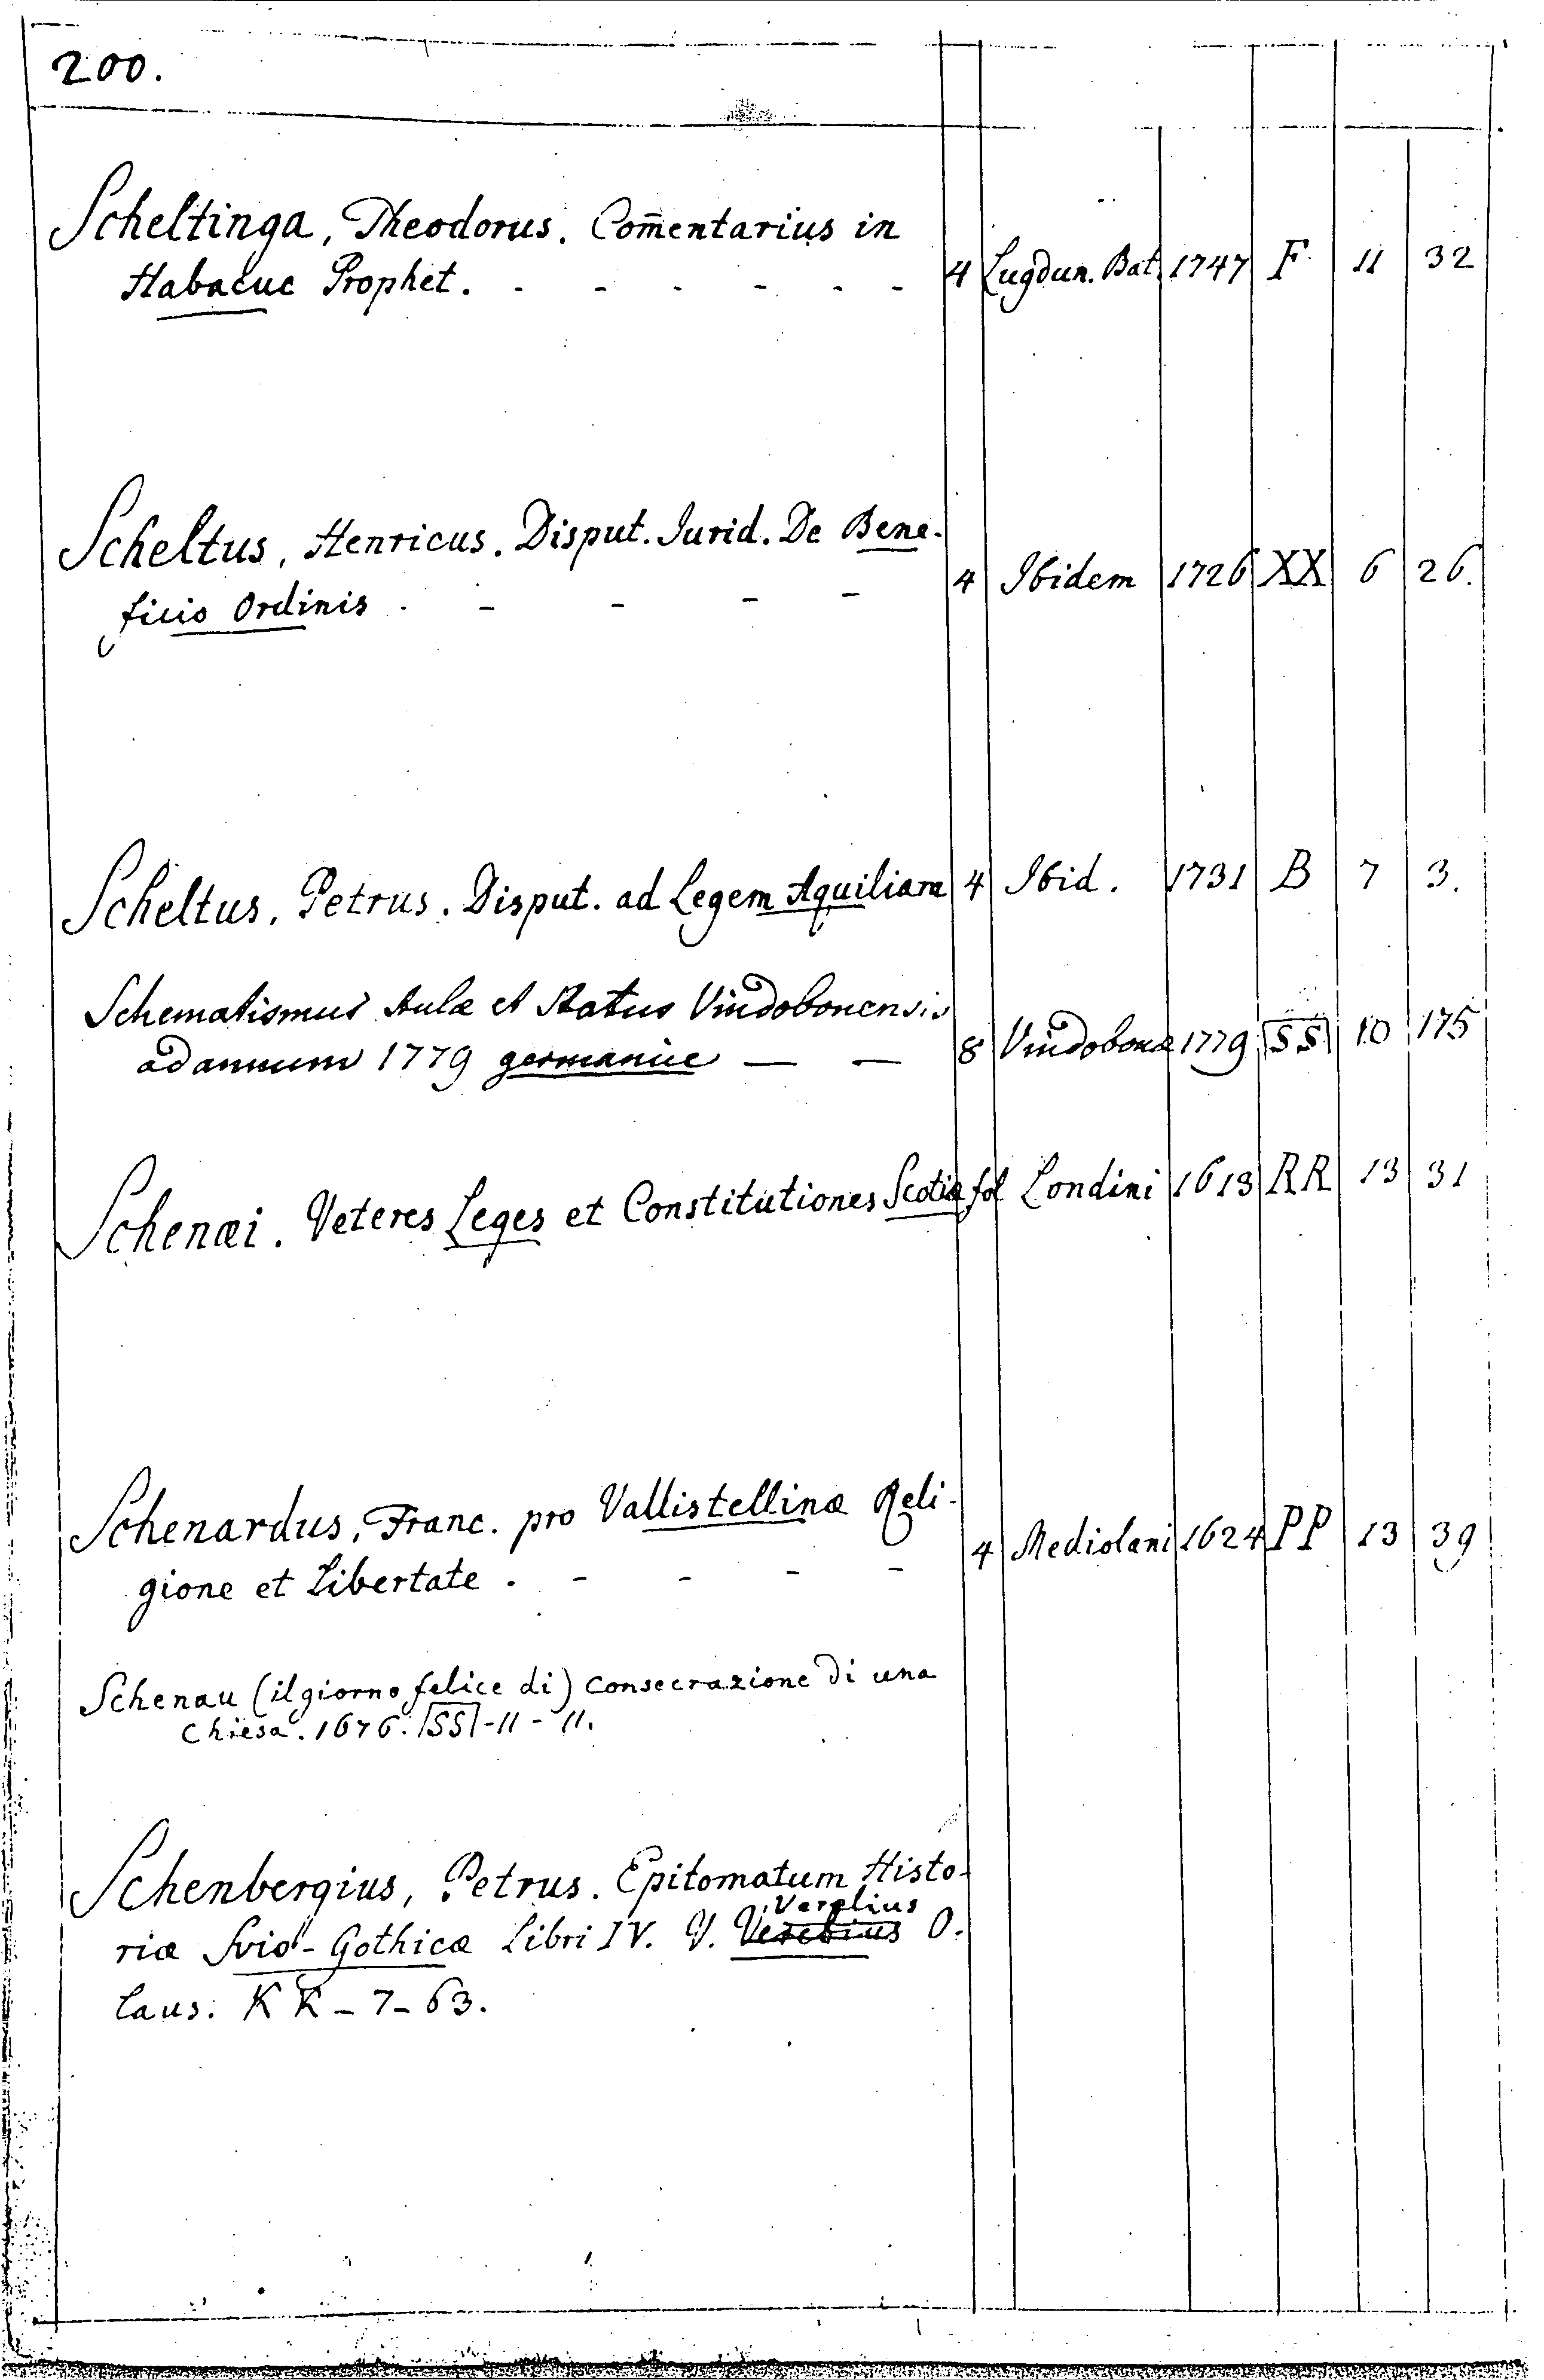 200.
Scheltinga, Theodorus. Com̄entarius in
Habacuc Prophet. - - - - - - 4 Lugdun. Bat. 1747 F 11 32
Scheltus, Henricus. Disput. Jurid. De Bene-
ficio Ordinis - - - - 4 Ibidem 1726 XX 6 26.
Scheltus, Petrus. Disput. ad Legem Aquiliam 4 Ibid. 1731 B 7 3.
Schematismus Aulæ et Status Vindobonensis
ad annum 1779 germanice — — 8 Vindobonæ 1779 SS 10 175
Schenæi. Veteres Leges et Constitutiones Scotiæ fol Londini 1613 RR 13 31
Schenardus, Franc. pro Vallistellinæ Reli-
gione et Libertate. - - - - 4 Mediolani 1624 PP 13 39
Schenau (il giorno felice di) consecrazione di una
Chiesa. 1676. SS-11-11.
Schenbergius, Petrus. Epitomatum Histo-
Verelius
riæ Svio-Gothicæ Libri IV. V. Verebius O.
laus. KK-7-63.